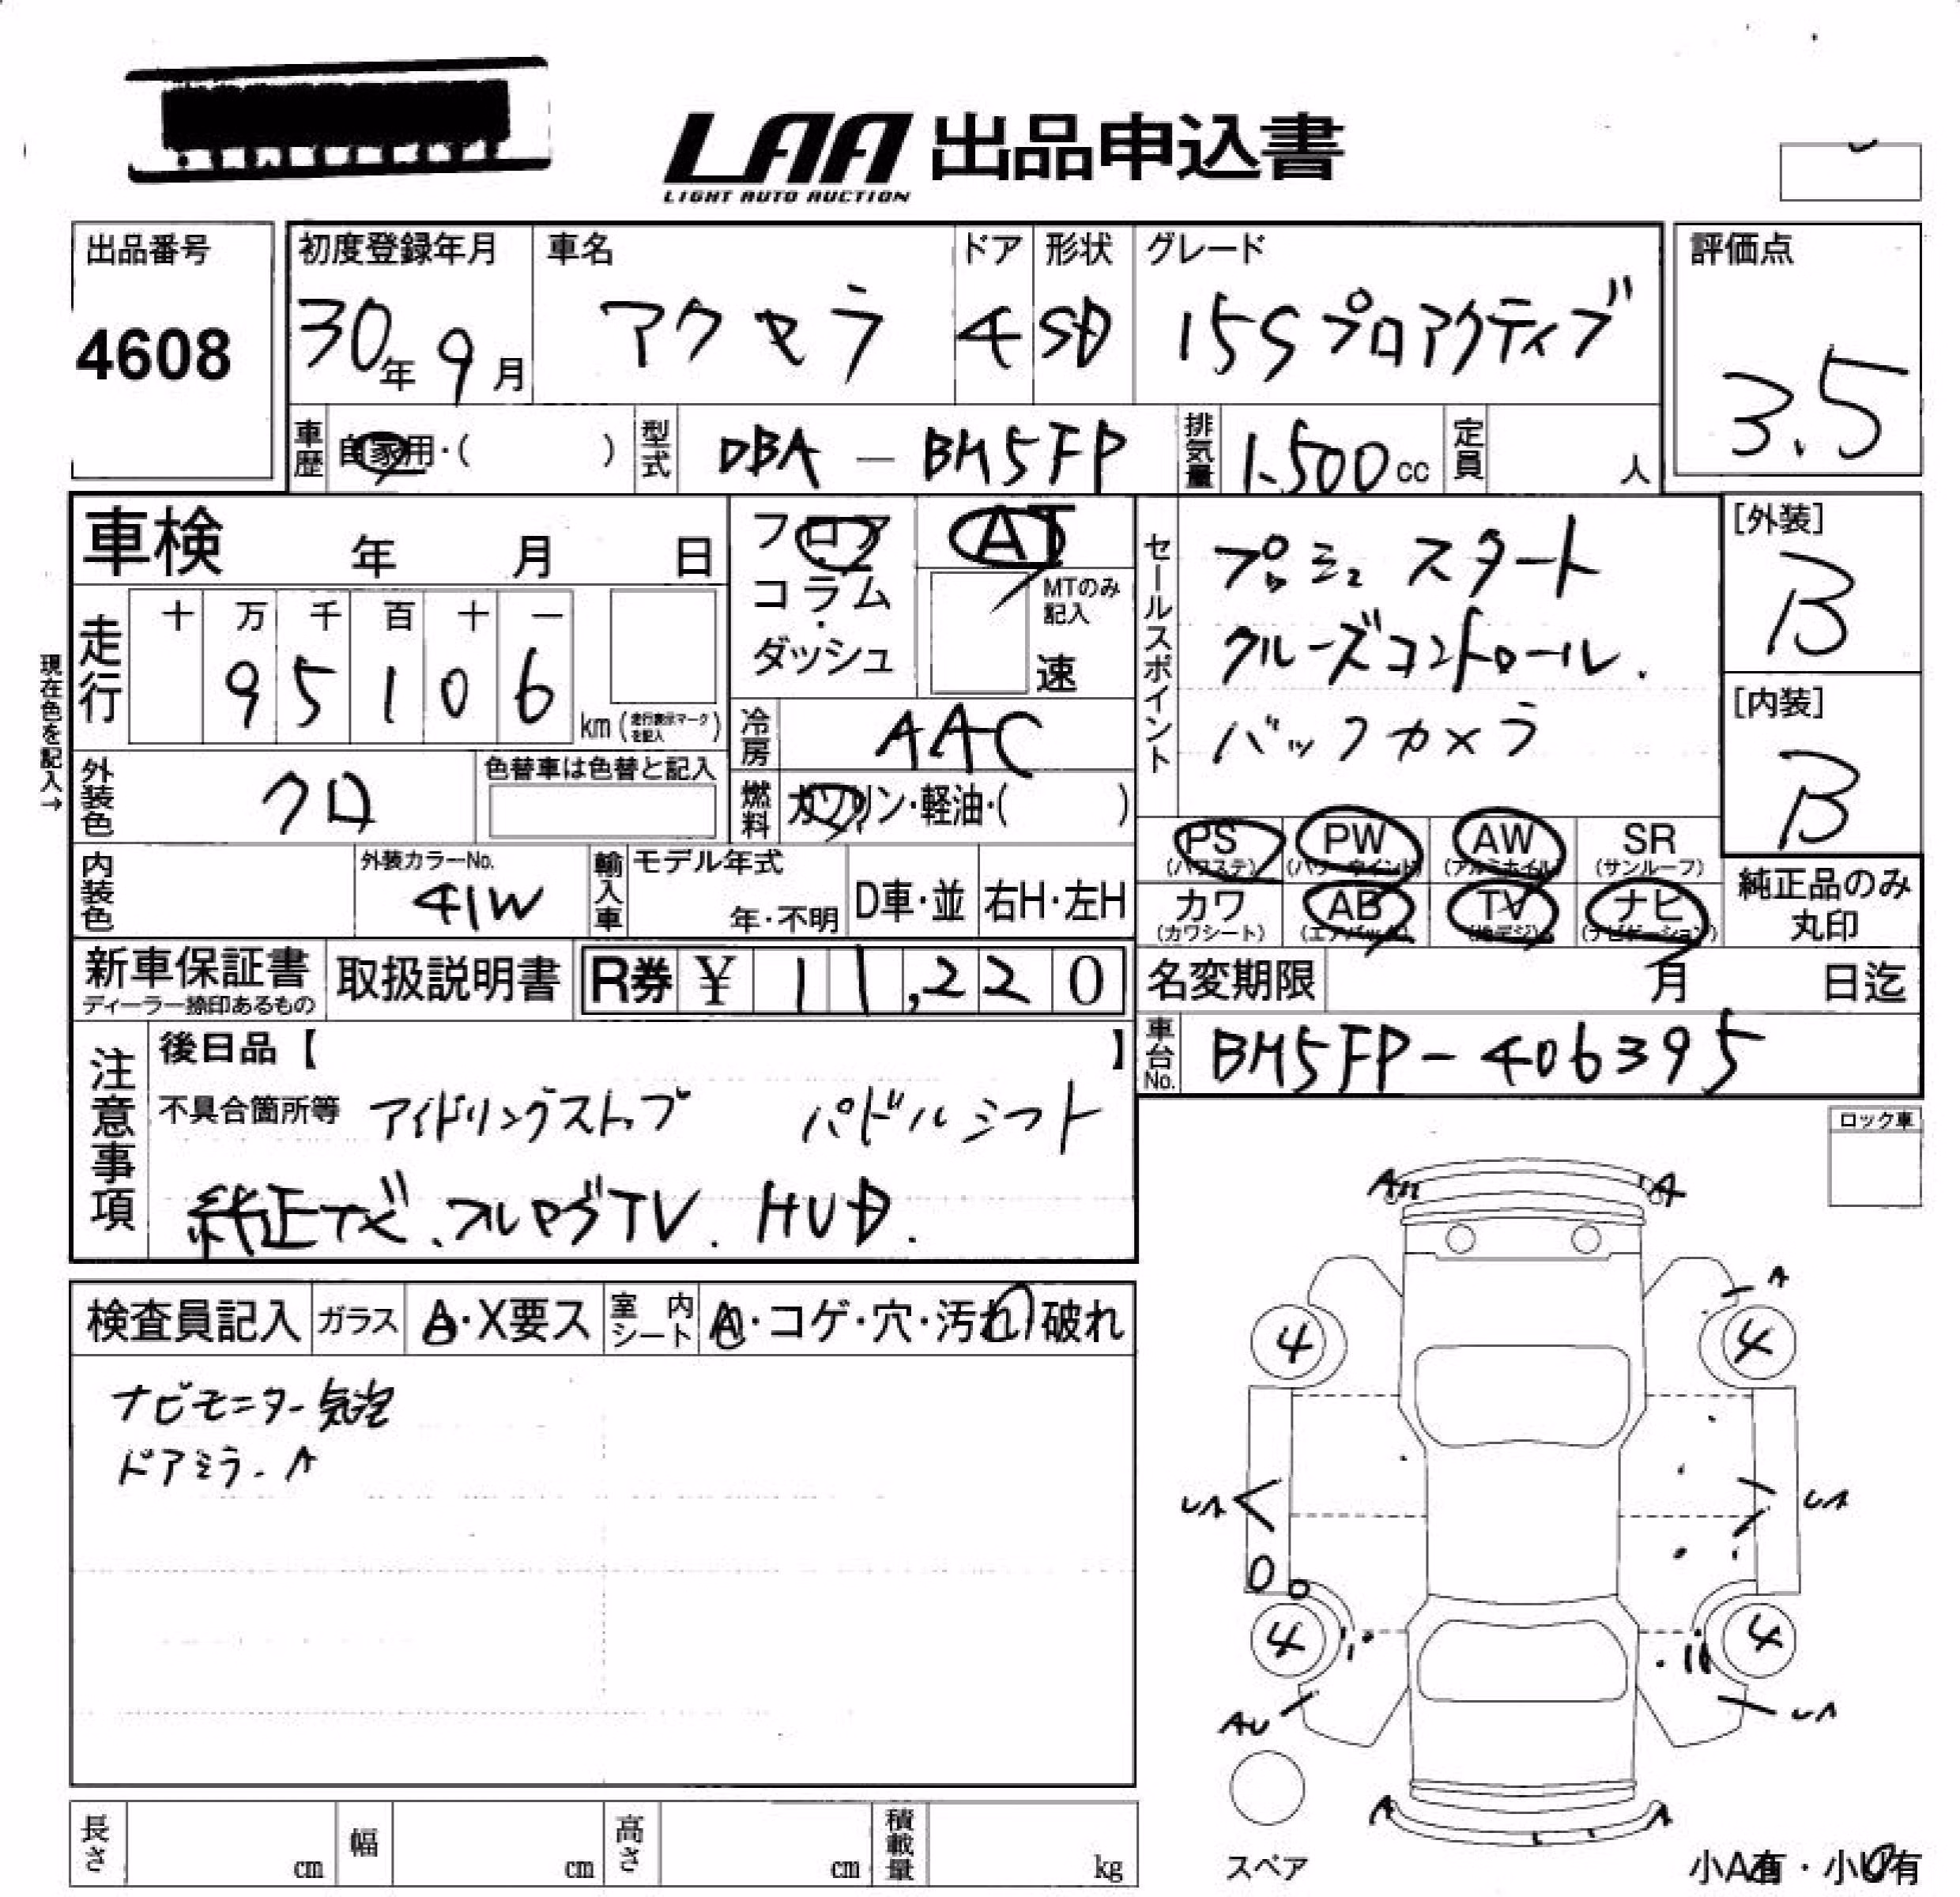 LAA 出品申込書
LIGHT AUTO AUCTION
出品番号
4608
初度登録年月 車名 ドア 形状 グレード
30年 9月 アクセラ 4 SD 15Sプロアクティブ
評価点
3.5
車歴 自家用・( ) 型式 DBA － BM5FP 排気量 1.500cc 定員 人
車検 年 月 日
フロア・コラム・ダッシュ
AT
MTのみ記入
速
セールスポイント
プッシュスタート
クルーズコントロール.
バックカメラ
[外装]
B
[内装]
B
現在色を記入→
走行 十 万 千 百 十 一
9 5 1 0 6 km (走行表示マークを記入)
冷房 AAC
外装色 クロ 色替車は色替と記入
燃料 ガソリン・軽油・( )
PS (パワステ) PW (パワーウインド) AW (アルミホイル) SR (サンルーフ)
カワ (カワシート) AB (エアバック) TV (地デジ) ナビ (ナビゲーション)
純正品のみ丸印
内装色 外装カラーNo. 41W 輸入車 モデル年式 年・不明 D車・並 右H・左H
新車保証書 ディーラー捺印あるもの 取扱説明書 R券 ¥ 11,220
名変期限 月 日迄
車台No. BM5FP－406395
注意事項
後日品【 】
不具合箇所等 アイドリングストップ パドルシフト
純正ナビ、フルセグTV. HUD.
ロック車
検査員記入 ガラス A・X要ス 室内シート A・コゲ・穴・汚れ・破れ
ナビモニター気泡
ドアミラーA
A A
A
4 4
UA UA
4 4
AU UA
A A
スペア
小A有・小U有
長さ cm 幅 cm 高さ cm 積載量 kg